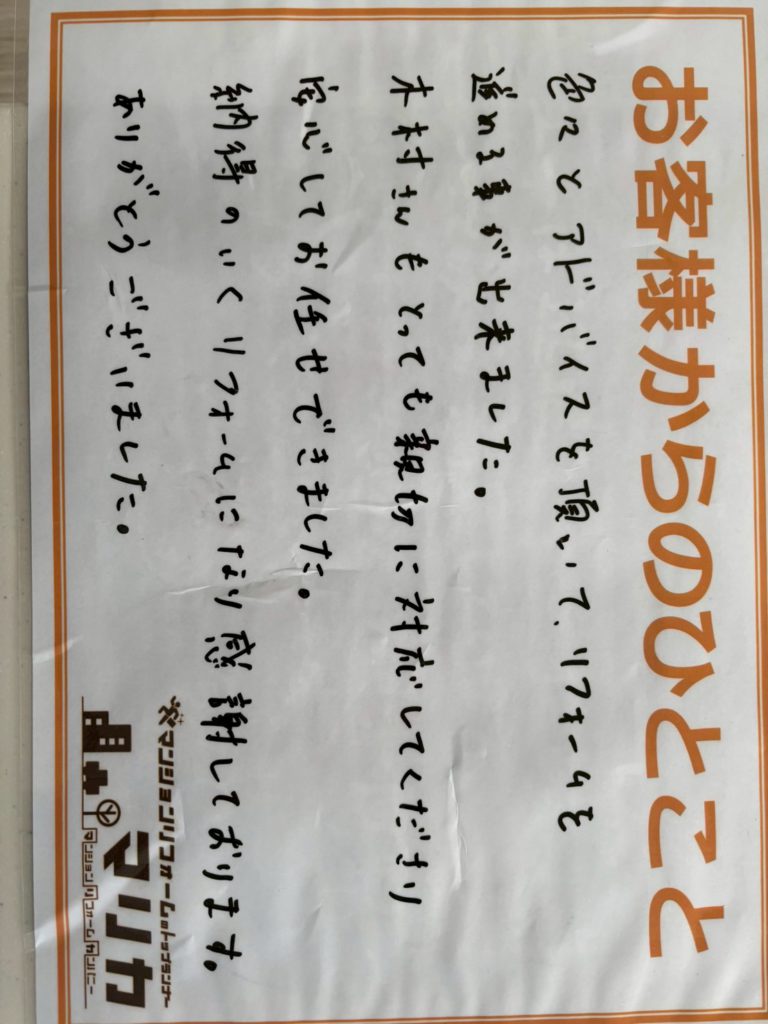 お客様からのひとこと
色々とアドバイスを頂いて、リフォームを
進める事が出来ました。
木村さんもとっても親切に対応してくださり
安心してお任せできました。
納得のいくリフォームになり感謝しております。
ありがとうございました。
マンションリフォームのトップランナー
マリカ
マンションリフォームカンパニー